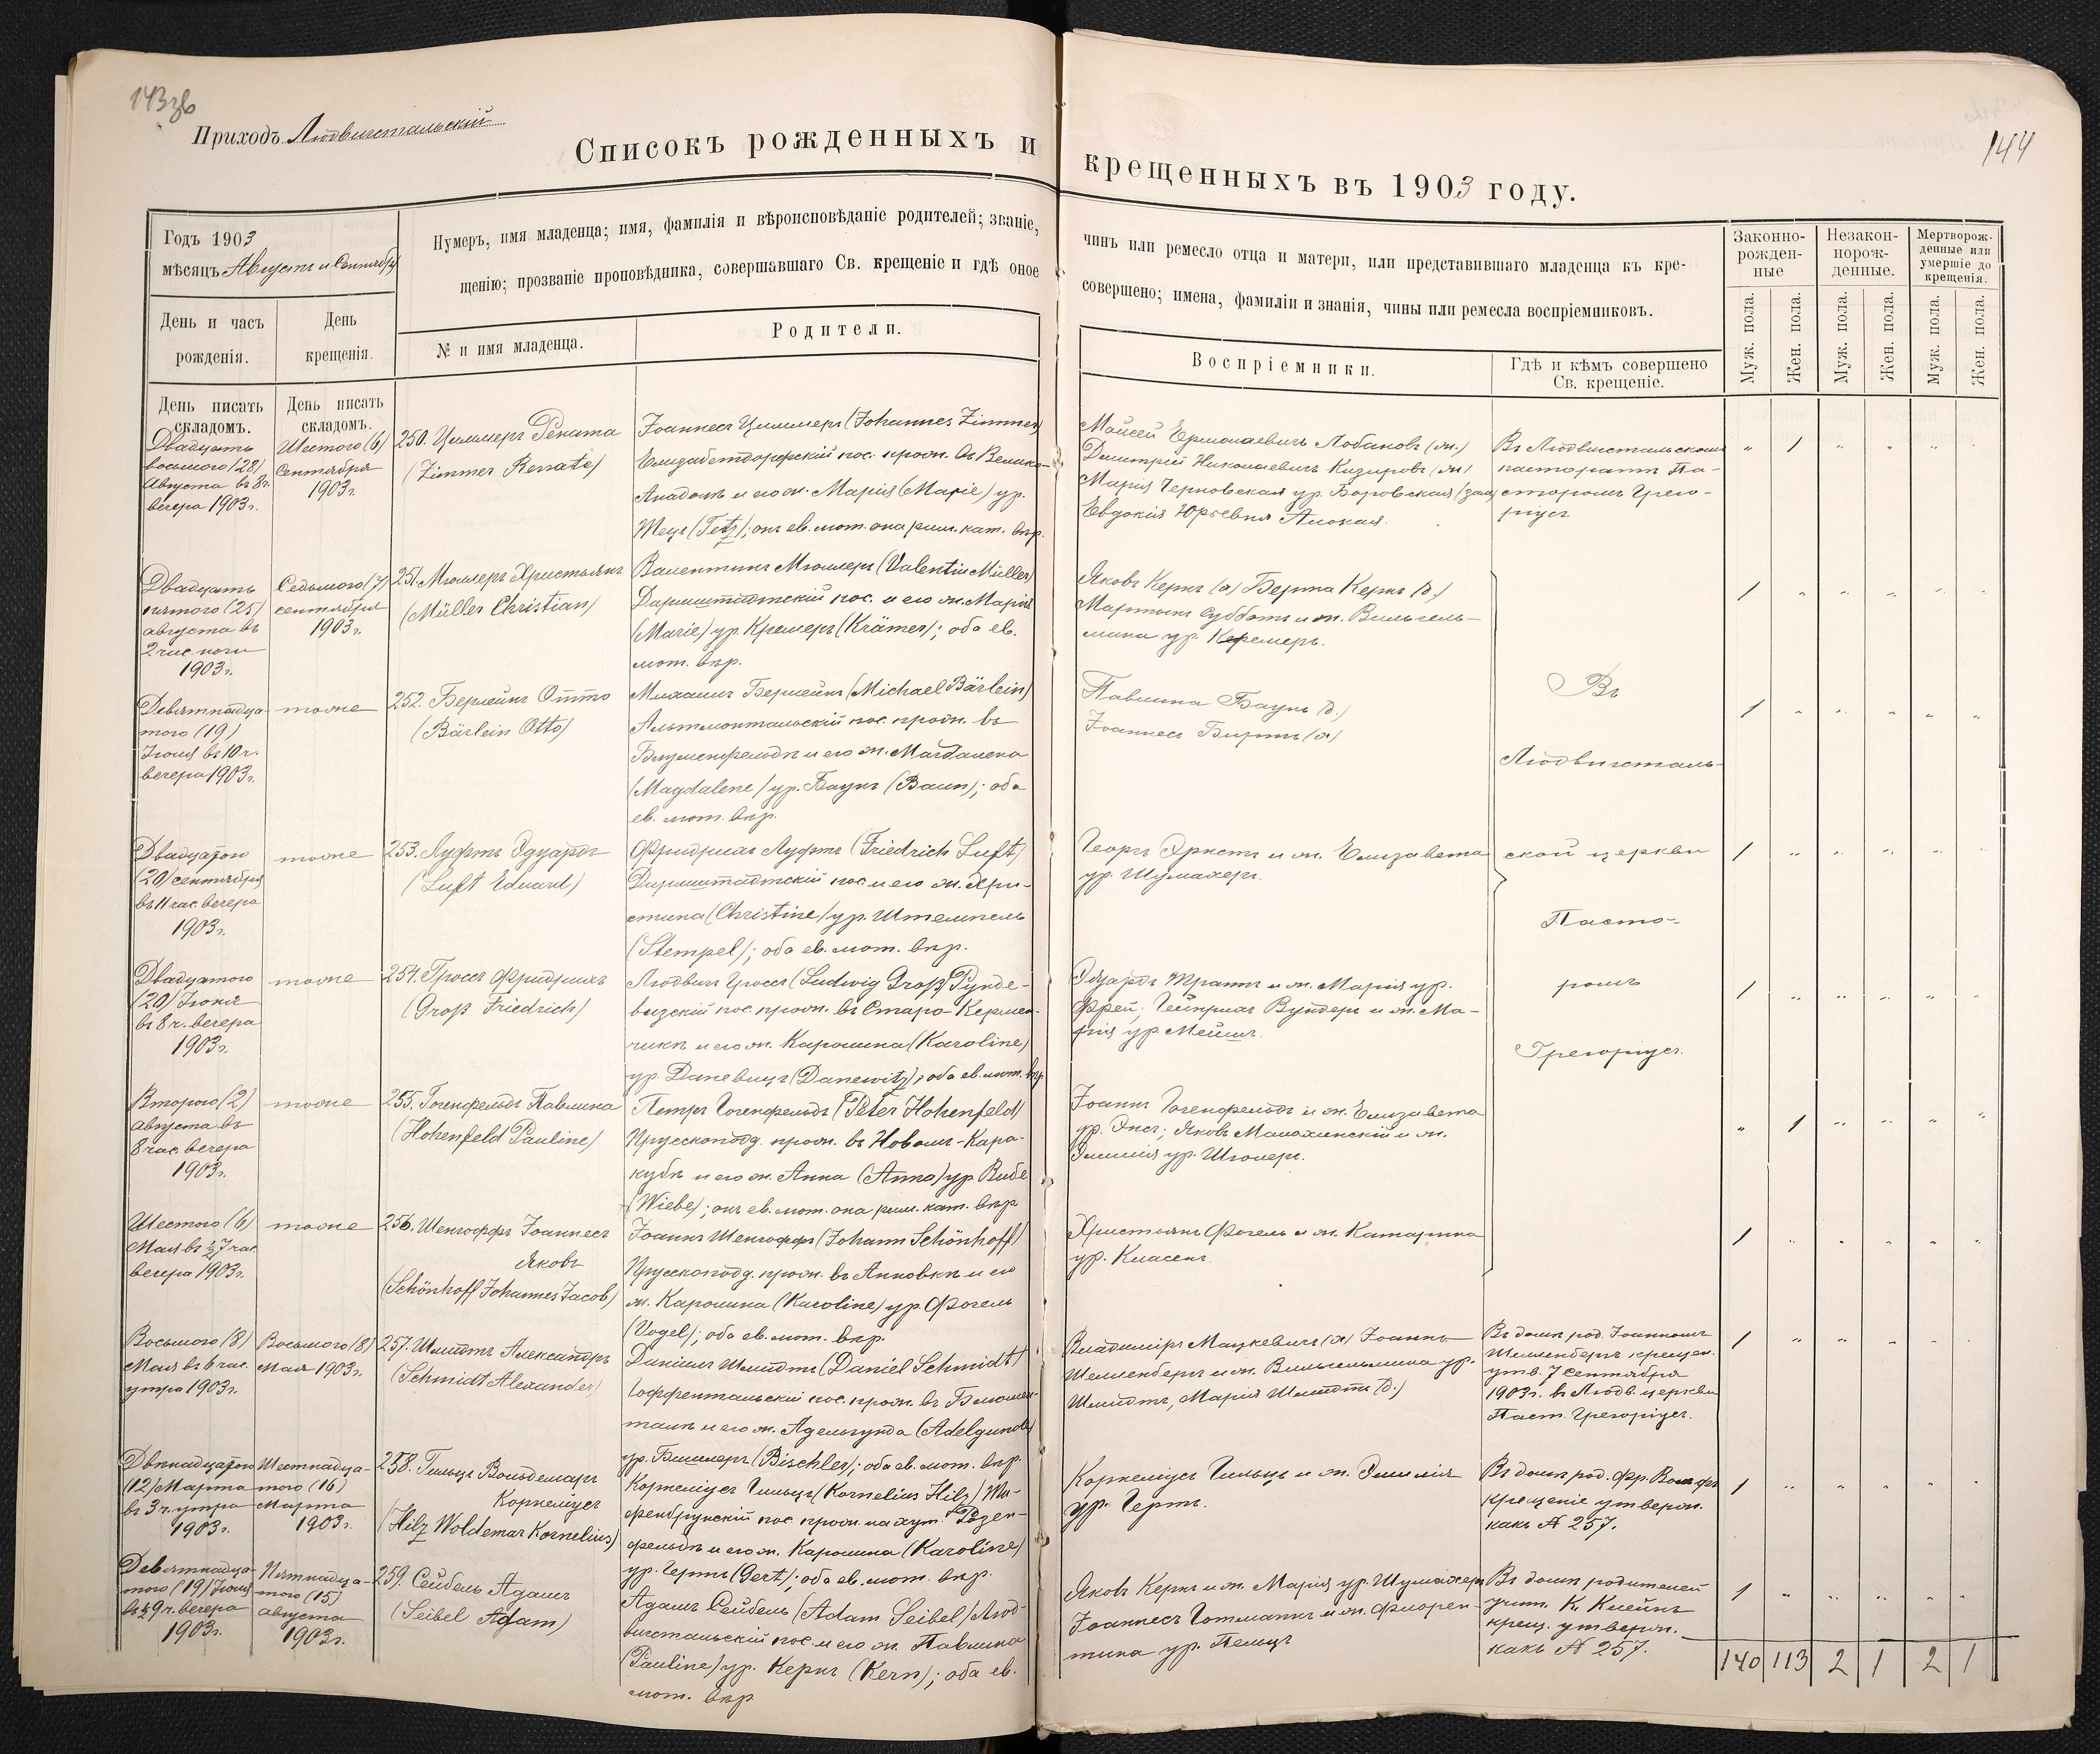 143об
144
Приходъ Людвигстальскій
Списокъ рожденныхъ и крещенныхъ въ 1903 году.
Годъ 1903
мѣсяцъ Августъ и Сентябрь
Нумеръ, имя младенца; имя, фамилія и вѣроисповѣданіе родителей; званіе, чинъ или ремесло отца и матери, или представившаго младенца къ кре-
щенію; прозваніе проповѣдника, совершавшаго Св. крещеніе и гдѣ оное совершено; имена, фамиліи и знанія, чины или ремесла воспріемниковъ.
Законно-
рожден-
ные
Незакон-
норож-
денные.
Мертворож-
денные или
умершіе до
крещенія.
День и часъ
рожденія.
День
крещенія.
№ и имя младенца.
Родители.
Воспріемники.
Гдѣ и кѣмъ совершено
Св. крещеніе.
Муж. пола.
Жен. пола.
Муж. пола.
Жен. пола.
Муж. пола.
Жен. пола.
День писать
складомъ.
День писать
складомъ.
Двадцать
восьмого (28)
Августа въ 8 ч.
вечера 1903 г.
Шестого (6)
Сентября
1903 г.
250. Циммеръ Рената
(Zimmer Renate)
Іоаннесъ Циммеръ (Johannes Zimmer)
Елизабетдорфскій пос. прож. въ Велико-
Анадолѣ и его ж. Марія (Marie) ур.
Тецъ (Tetz); онъ ев. лют. она рим. кат. вѣр.
Моисей Ермолаевичъ Лобановъ (ж.)
Димитрій Николаевичъ Кизировъ (ж)
Марія Черновская ур. Боровская (зам)
Евдокія Юрьевна
Въ Людвигстальскомъ
пасторатѣ Па-
сторомъ Грего-
ріусъ
" 1 " " " "
Двадцать
пятого (25)
августа въ
2 час. ночи
1903 г.
Седьмого (7)
сентября
1903 г.
251. Мюллеръ Христьянъ
(Müller Christian)
Валентинъ Мюллеръ (Valentin Müller)
Дармштадтскій пос. и его ж. Марія
(Marie) ур. Кремеръ (Krämer); оба ев.
лют. вѣр.
Яковъ Кернъ (х) Берта Кернъ (д.)
Мартынъ Субботъ и ж. Вильгель-
мина ур. Кремеръ.
1 " " " " "
Девятнадца-
того (19)
Іюля въ 10 ч.
вечера 1903 г.
тоже
252. Берлейнъ Отто
(Bärlein Otto)
Михаилъ Берлейнъ (Michael Bärlein)
Альтмонтальскій пос. прож. въ
Блуменфельдѣ и его ж. Магдалена
(Magdalene) ур. Баунъ (Baun); оба
ев. лют. вѣр.
Павлина Баунъ (д.)
Іоаннесъ Биртъ (х)
Въ
Людвигсталь-
ской церкви
Пасто-
ромъ
Грегоріусъ.
1 " " " " "
Двадцатого
(20) сентября
въ 11 час. вечера
1903 г.
тоже
253. Луфтъ Эдуардъ
(Luft Eduard)
Фридрихъ Луфтъ (Friedrich Luft)
Дармштадтскій пос. и его ж. Хри-
стина (Christine) ур. Штемпель
(Stempel); оба ев. лют. вѣр.
Георгъ Эрнстъ и ж. Елизавета
ур. Шумахеръ.
1 " " " " "
Двадцатого
(20) Іюня
въ 8 ч. вечера
1903 г.
тоже
254. Гроссъ Фридрихъ
(Groß Friedrich)
Людвигъ Гроссъ (Ludwig Groß) Рунде-
визскій пос. прож. въ Старо-Кермен-
чикѣ и его ж. Каролина (Karoline)
ур. Даневицъ (Danewitz); оба ев. лют. вѣр.
Эдуардъ Траппъ и ж. Марія ур.
Фрей; Гейнрихъ Вундеръ и ж. Ма-
рія ур. Мейшъ.
1 " " " " "
Второго (2)
августа въ
8 час. вечера
1903 г.
тоже
255. Гогенфельдъ Павлина
(Hohenfeld Pauline)
Петръ Гогенфельдъ (Peter Hohenfeld)
Прусскоподд. прож. въ Новомъ-Кара-
кубѣ и его ж. Анна (Anna) ур. Вибе
(Wiebe); онъ ев. лют. она рим. кат. вѣр.
Іоаннъ Гогенфельдъ и ж. Елизавета
ур. Энсъ; Яковъ Малахинскій и ж.
Эмилія ур. Шмолеръ.
" 1 " " " "
Шестого (6)
Мая въ ½ 7 час.
вечера 1903 г.
тоже
256. Шенгоффъ Іоаннесъ
Яковъ
(Schönhoff Johannes Jacob)
Іоаннъ Шенгоффъ (Johann Schönhoff)
Прусскоподд. прож. въ Анновкѣ и его
ж. Каролина (Karoline) ур. Фогель
(Vogel); оба ев. лют. вѣр.
Христьянъ Фогель и ж. Катарина
ур. Класенъ.
1 " " " " "
Восьмого (8)
Мая въ 6 час.
утра 1903 г.
Восьмого (8)
Мая 1903 г.
257. Шмидтъ Александръ
(Schmidt Alexander)
Даніилъ Шмидтъ (Daniel Schmidt)
Гоффентальскій пос. прож. въ Блюмен-
талѣ и его ж. Адельгунда (Adelgunde)
ур. Бишлеръ (Bischler); оба ев. лют. вѣр.
Владиміръ Мацкевичъ (х) Іоаннъ
Шелленбергъ и ж. Вильгельмина ур.
Шмидтъ, Марія Шмидтъ (д.)
Въ домѣ род. Іоанномъ
Шелленбергъ крещен.
утв. 7 Сентября
1903 г. въ Людв. церкви
Паст. Грегоріусъ.
1 " " " " "
Двѣнадцатого
(12) Марта
въ 3 ч. утра
1903 г.
Шестнадца-
того (16)
Марта
1903 г.
258. Гильцъ Вольдемаръ
Корнеліусъ
(Hilz Woldemar Kornelius)
Корнеліусъ Гильцъ (Kornelius Hilz) Ти-
фенбрунскій пос. прож. на хут. Розен-
фельдъ и его ж. Каролина (Karoline)
ур. Гертъ (Gert); оба ев. лют. вѣр.
Корнеліусъ Гильцъ и ж. Эмилія
ур. Гертъ.
Въ домѣ род. Фр.
крещеніе утвержд.
какъ № 257.
1 " " " " "
Девятнадца-
того (19) Іюля
въ ½ 9 ч. вечера
1903 г.
Пятнадца-
того (15)
августа
1903 г.
259. Сейбель Адамъ
(Seibel Adam)
Адамъ Сейбель (Adam Seibel) Люд-
вигстальскій пос. и его ж. Павлина
(Pauline) ур. Кернъ (Kern); оба ев.
лют. вѣр.
Яковъ Кернъ и ж. Марія ур. Шумахеръ
Іоаннесъ Готманнъ и ж. Флорен-
тина ур. Пельцъ
Въ домѣ родителей
учит. К. Клейнъ
крещ. утвержд.
какъ № 257.
1 " " " " "
140 113 2 1 2 1